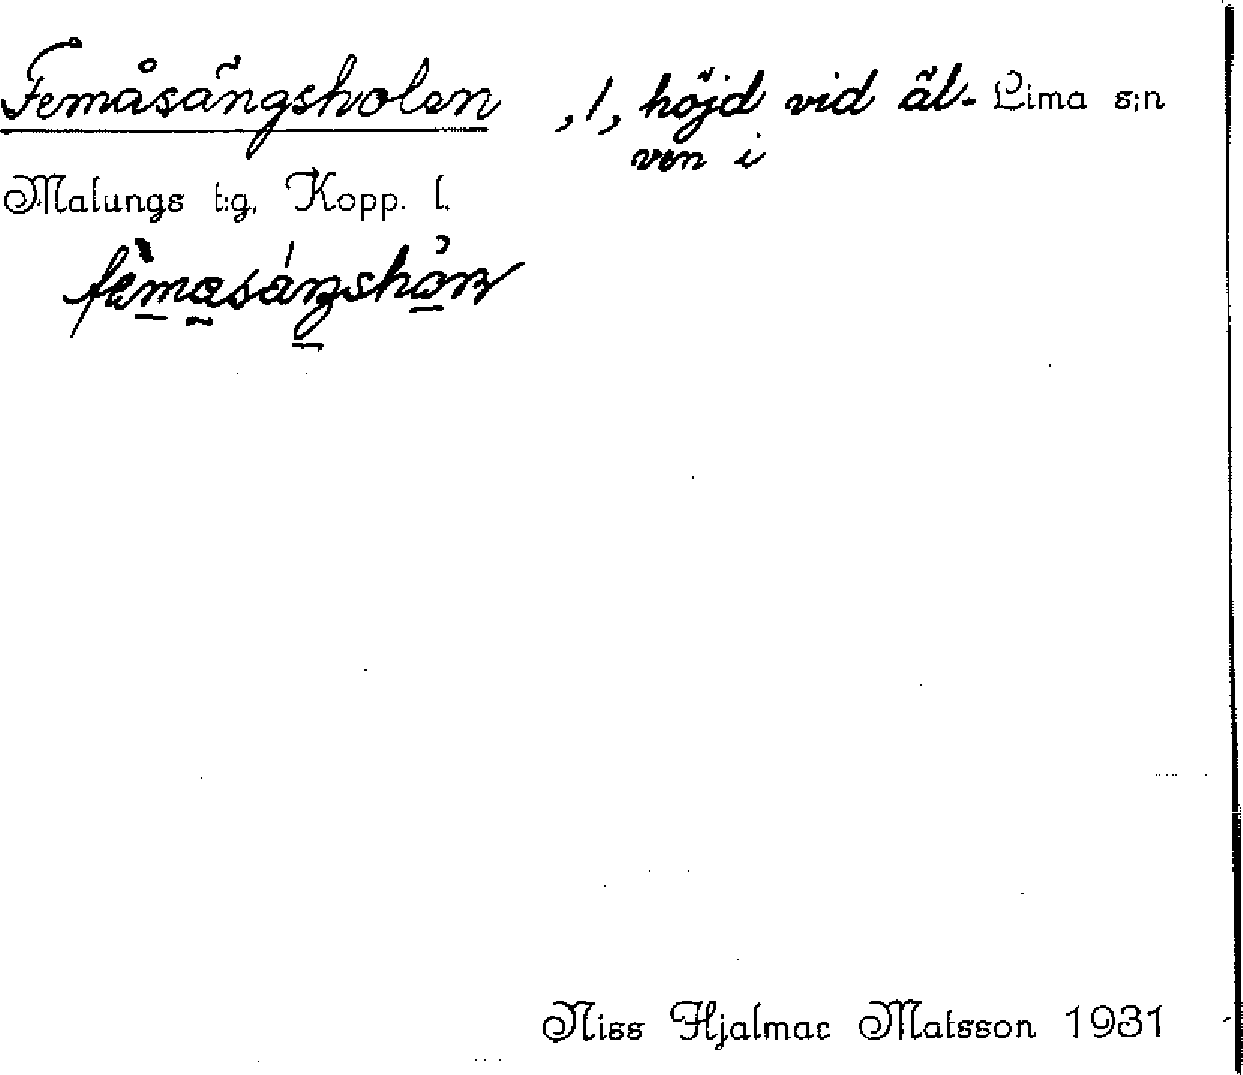 Femåsängsholen , 1, höjd vid äl- Lima s:n
ven i
Malungs t:g, Kopp. l.
Niss Hjalmar Matsson 1931